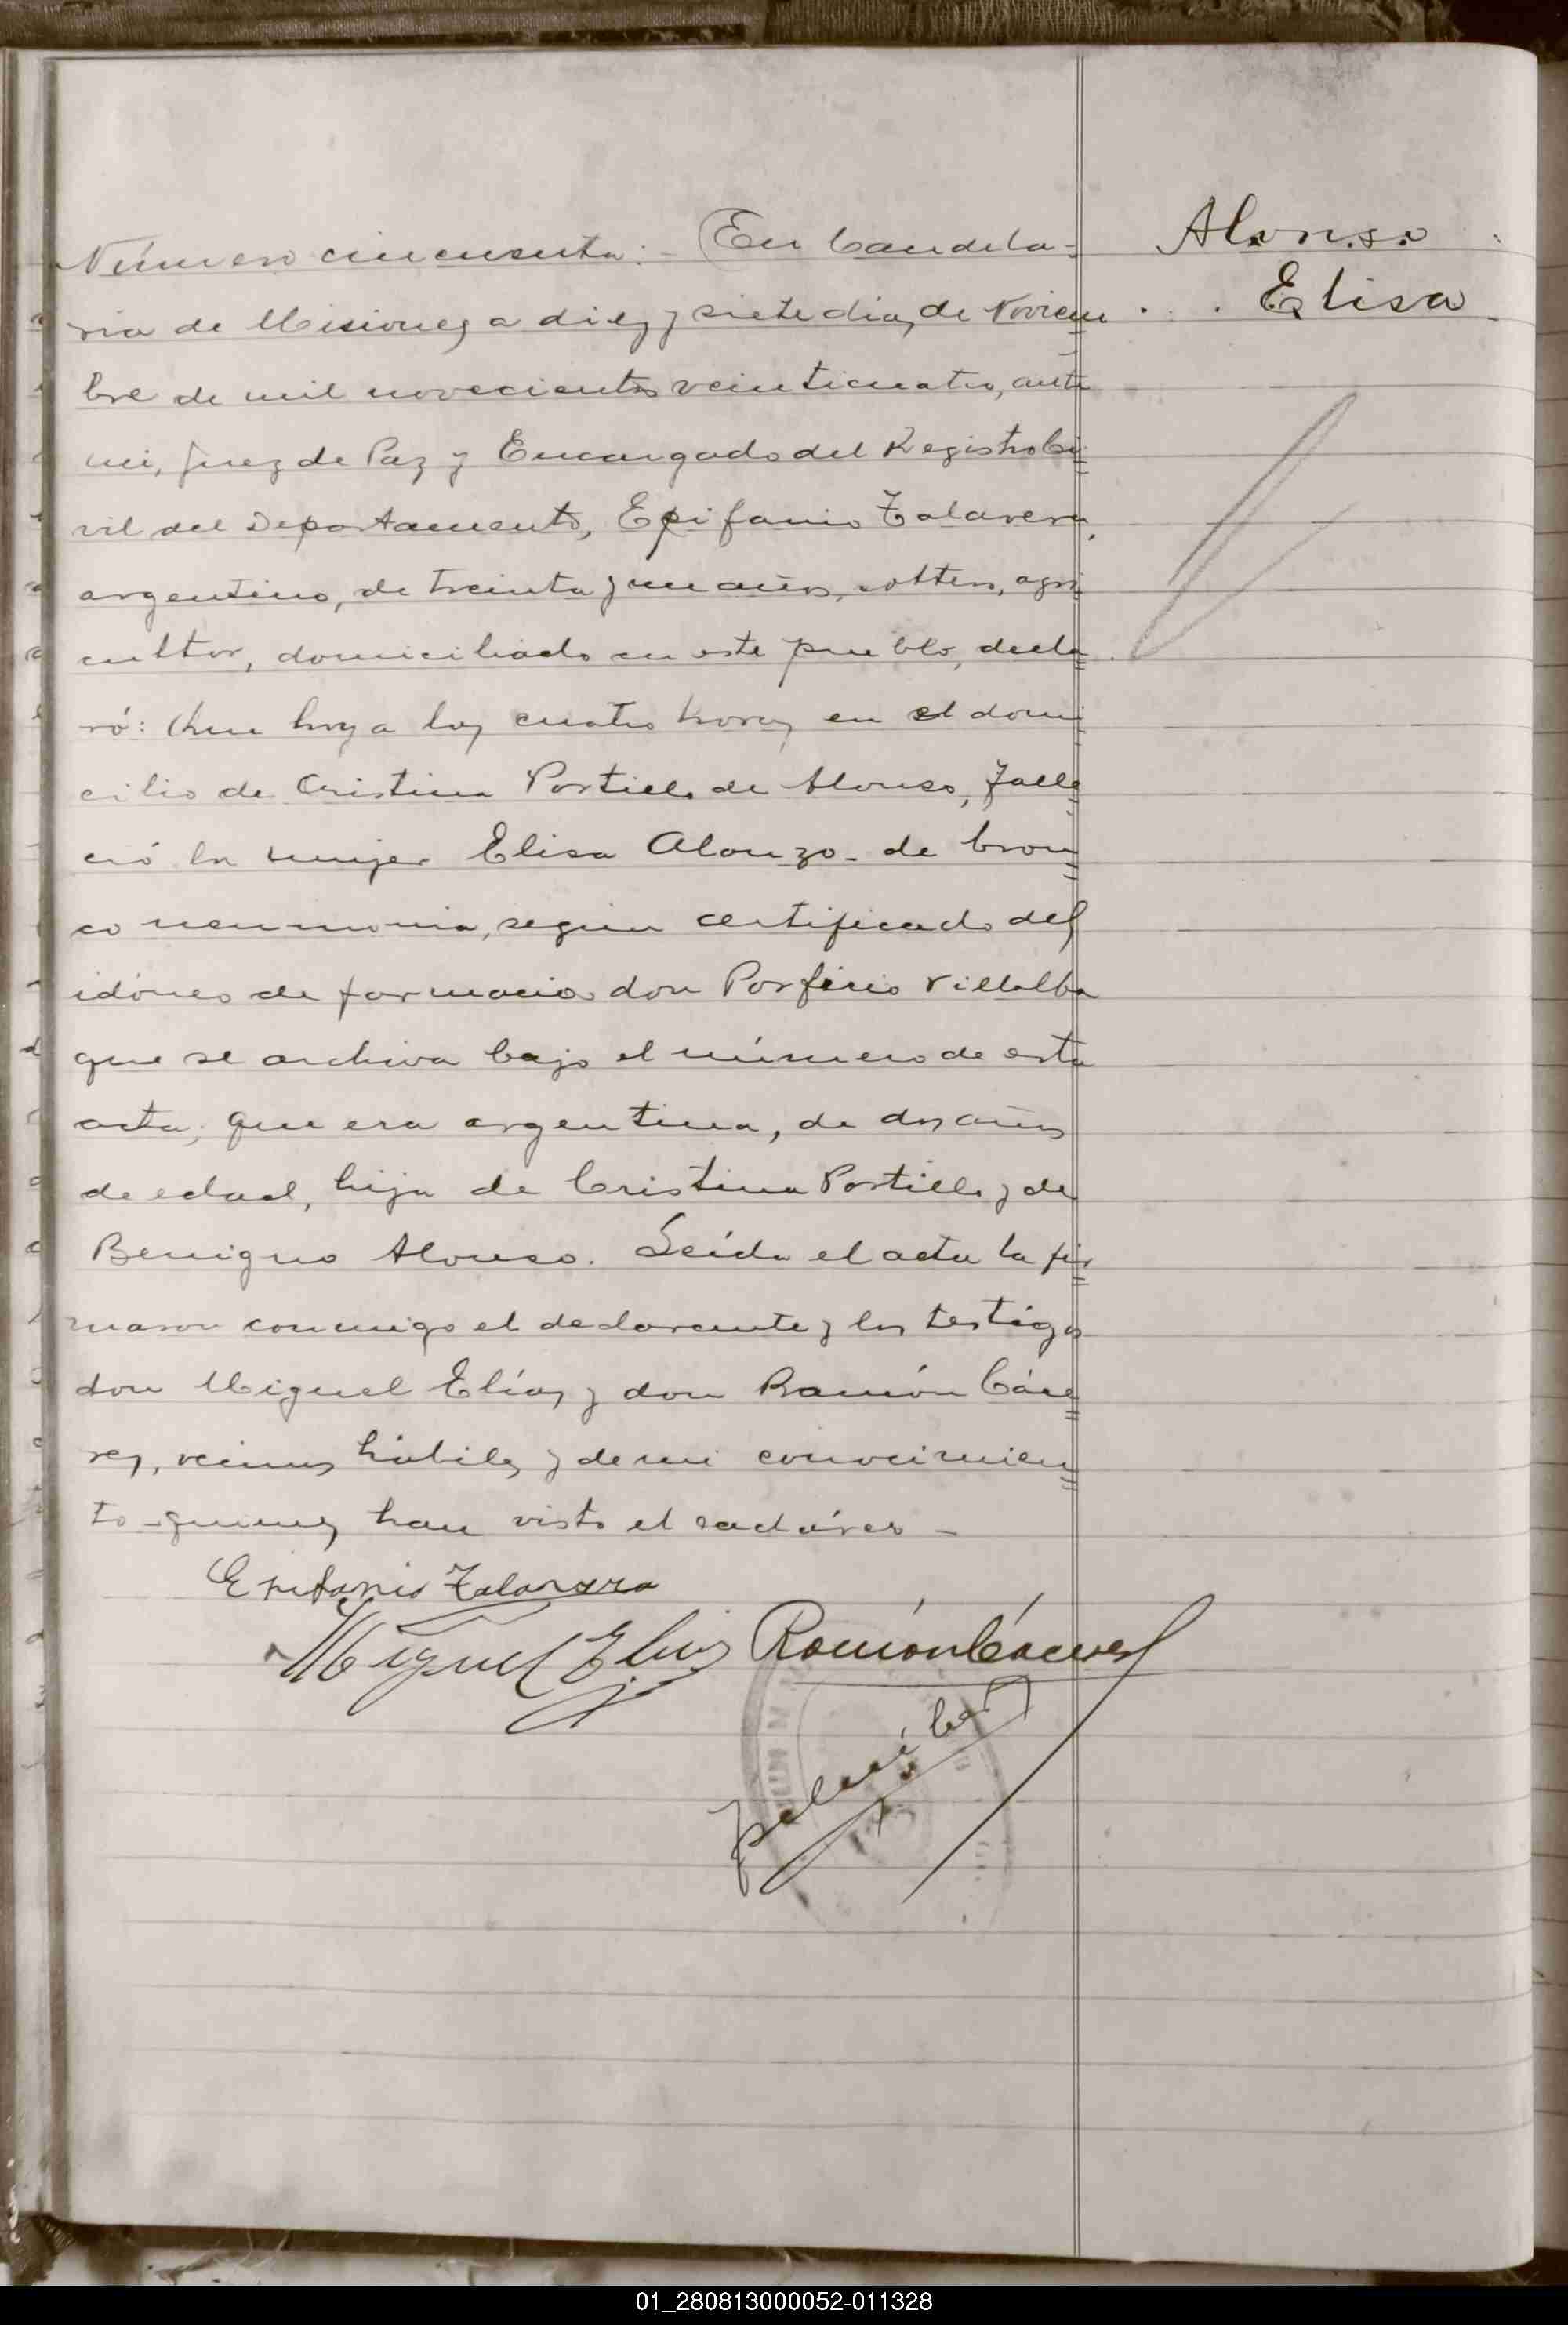 Alonso
Elisa
Número cincuenta:- En Candela=
ria de Misiones a diez y siete dias de Noviem
bre de mil novecientos veinticuatro, ante
mi, Juez de Paz y Encargado del Registro Ci=
vil del Departamento, Epifanio Talavera,
argentino, de treinta y un años, soltero, agri=
cultor, domiciliado en este pueblo, decla=
ró: Que hoy a las cuatro horas en el domi
cilio de Cristina Portillo de Alonso, falle=
ció la mujer Elisa Alonzo- de bron=
co neumonia, según certificado del
idóneo de farmacia don Porfirio Villalba
que se archiva bajo el número de esta
acta; que era argentina, de dos años
de edad, hija de Cristina Portillo y de
Benigno Alonso. Leída el acta la fir=
maron conmigo el declarante y los testigos
don Miguel Elías y don Ramón Cáce=
res, vecinos hábiles y de mi conocimien=
to quienes han visto el cadáver -
Epifanio Talavera
Miguel Elias Ramón Cáceres
01_280813000052-011328